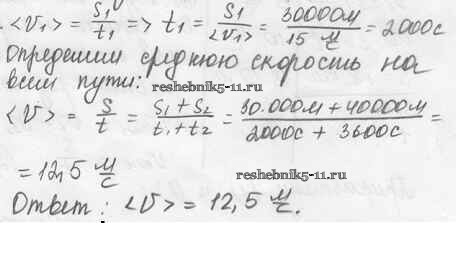 <V₁> = S₁/t₁ => t₁ = S₁/<V₁> = 30000м/15 м/с = 2000с
Определим среднюю скорость на
всём пути:
reshebnik5-11.ru
<V> = S/t = S₁ + S₂/t₁ + t₂ = 30.000м + 40000м/2000с + 3600с =
= 12,5 м/с
reshebnik5-11.ru
Ответ: <V> = 12,5 м/с.